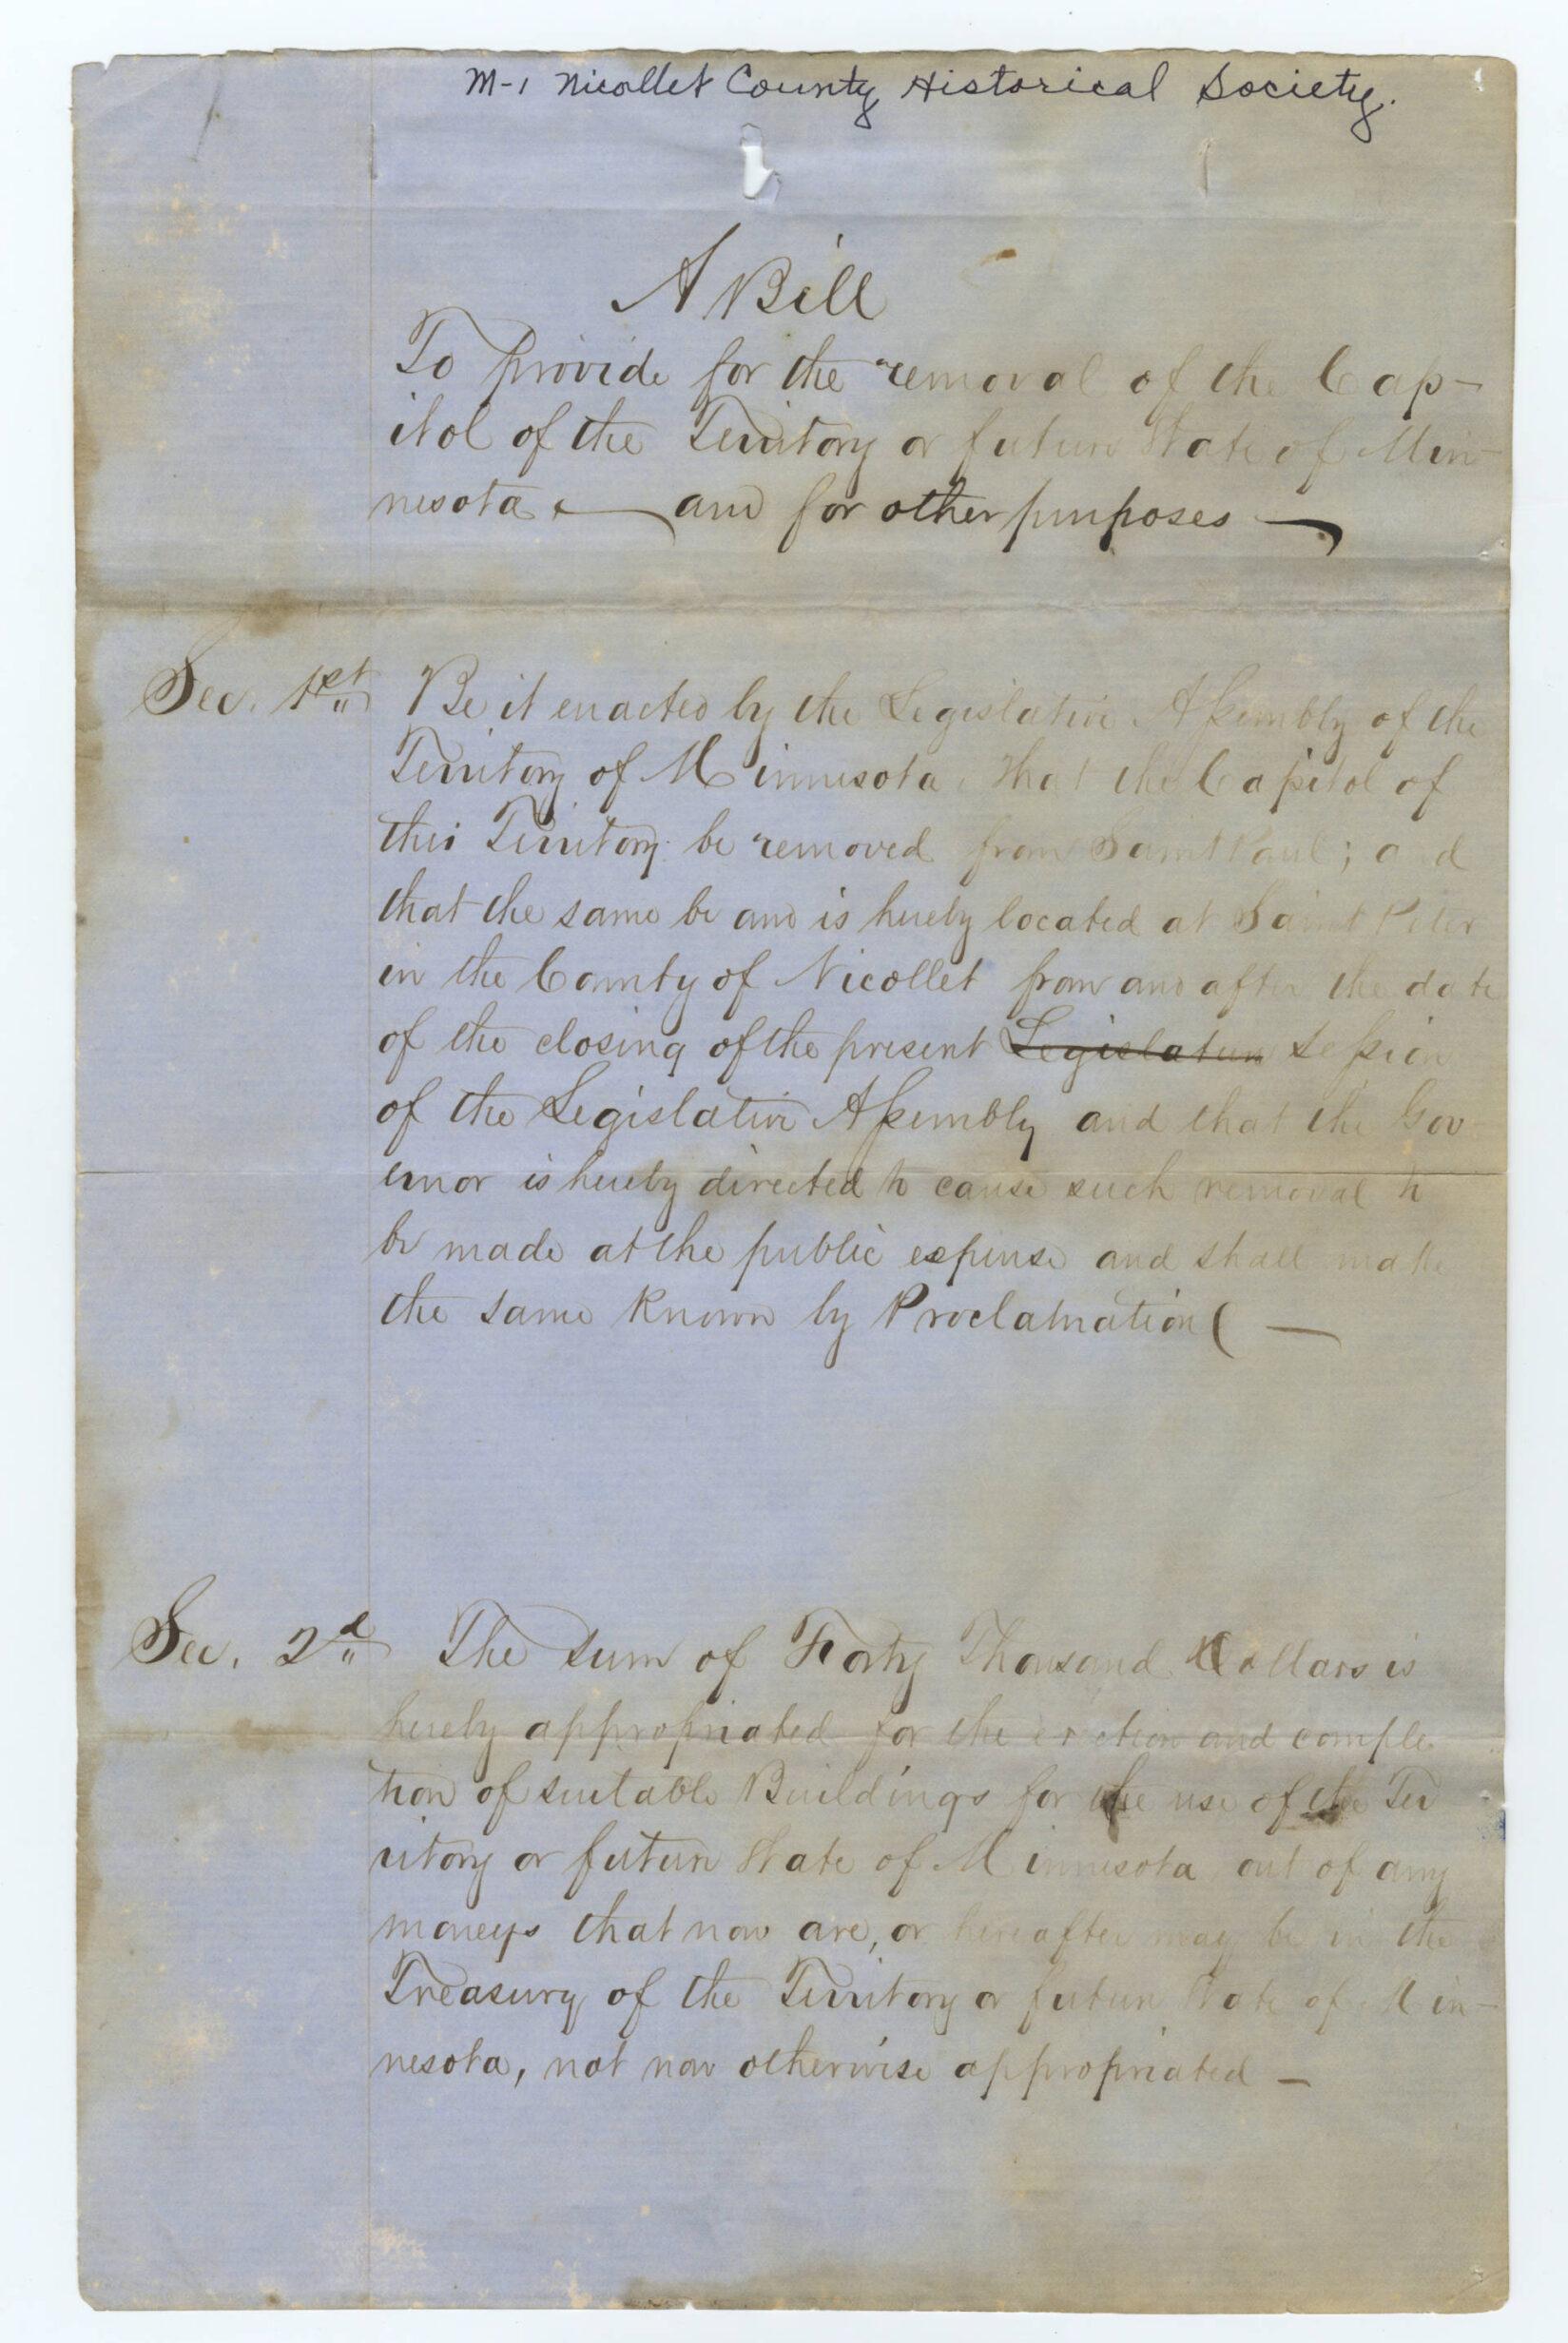 M-1 Nicollet County Historical Society.
A Bill
To provide for the removal of the Cap-
itol of the Territory or future State of Min-
nesota — and for other purposes —
Sec. 1st Be it enacted by the Legislative Assembly of the
Territory of Minnesota, that the Capitol of
this Territory be removed from Saint Paul; and
that the same be and is hereby located at Saint Peter
in the County of Nicollet from and after the date
of the closing of the present Legislature Session
of the Legislative Assembly and that the Gov-
ernor is hereby directed to cause such removal to
be made at the public expense and shall make
the same known by Proclamation —
Sec. 2d The sum of Forty Thousand Dollars is
hereby appropriated for the erection and comple-
tion of suitable Buildings for the use of the Ter
ritory or future State of Minnesota out of any
moneys that now are, or hereafter may be in the
Treasury of the Territory or future State of Min-
nesota, not now otherwise appropriated —